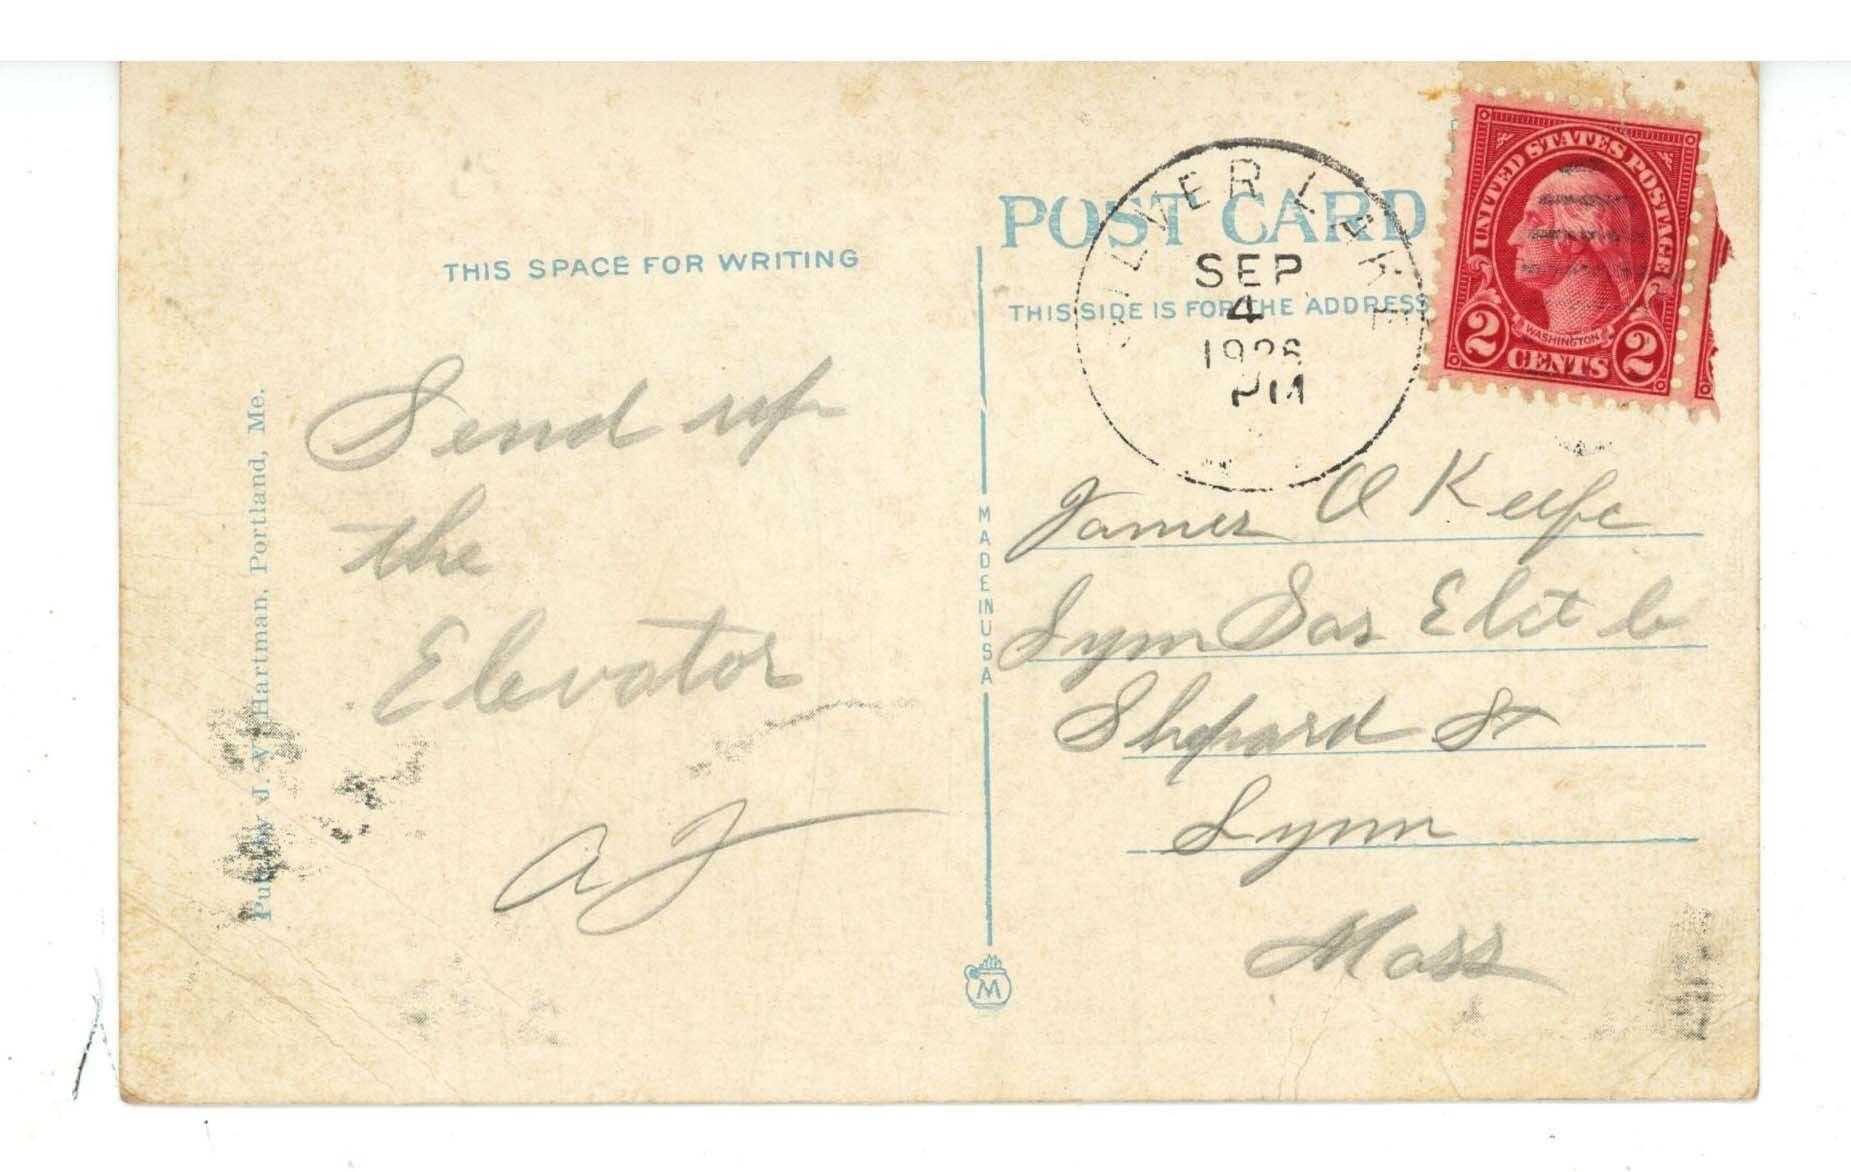 POST CARD
THIS SPACE FOR WRITING
THIS SIDE IS FOR THE ADDRESS
SILVER LAKE
SEP
4
1926
PM
UNITED STATES POSTAGE
WASHINGTON
2 CENTS 2
Send up
the
Elevator
A J
James O Keefe
Lynn Gas Elct Co
Shepard St
Lynn
Mass
MADE IN USA
M
Pub. by J. V. Hartman, Portland, Me.